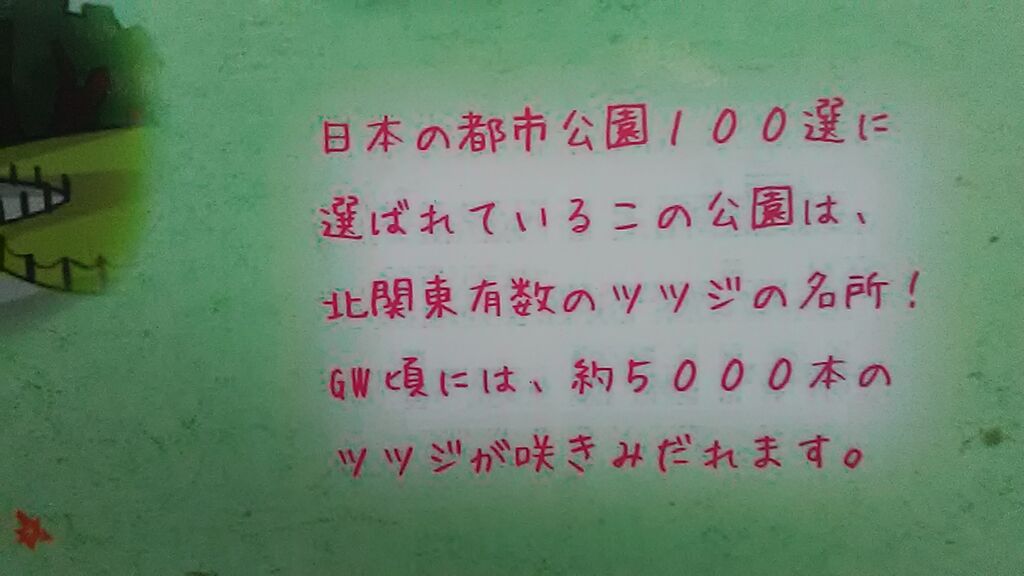 日本の都市公園１００選に
選ばれているこの公園は、
北関東有数のツツジの名所！
GW頃には、約５０００本の
ツツジが咲きみだれます。